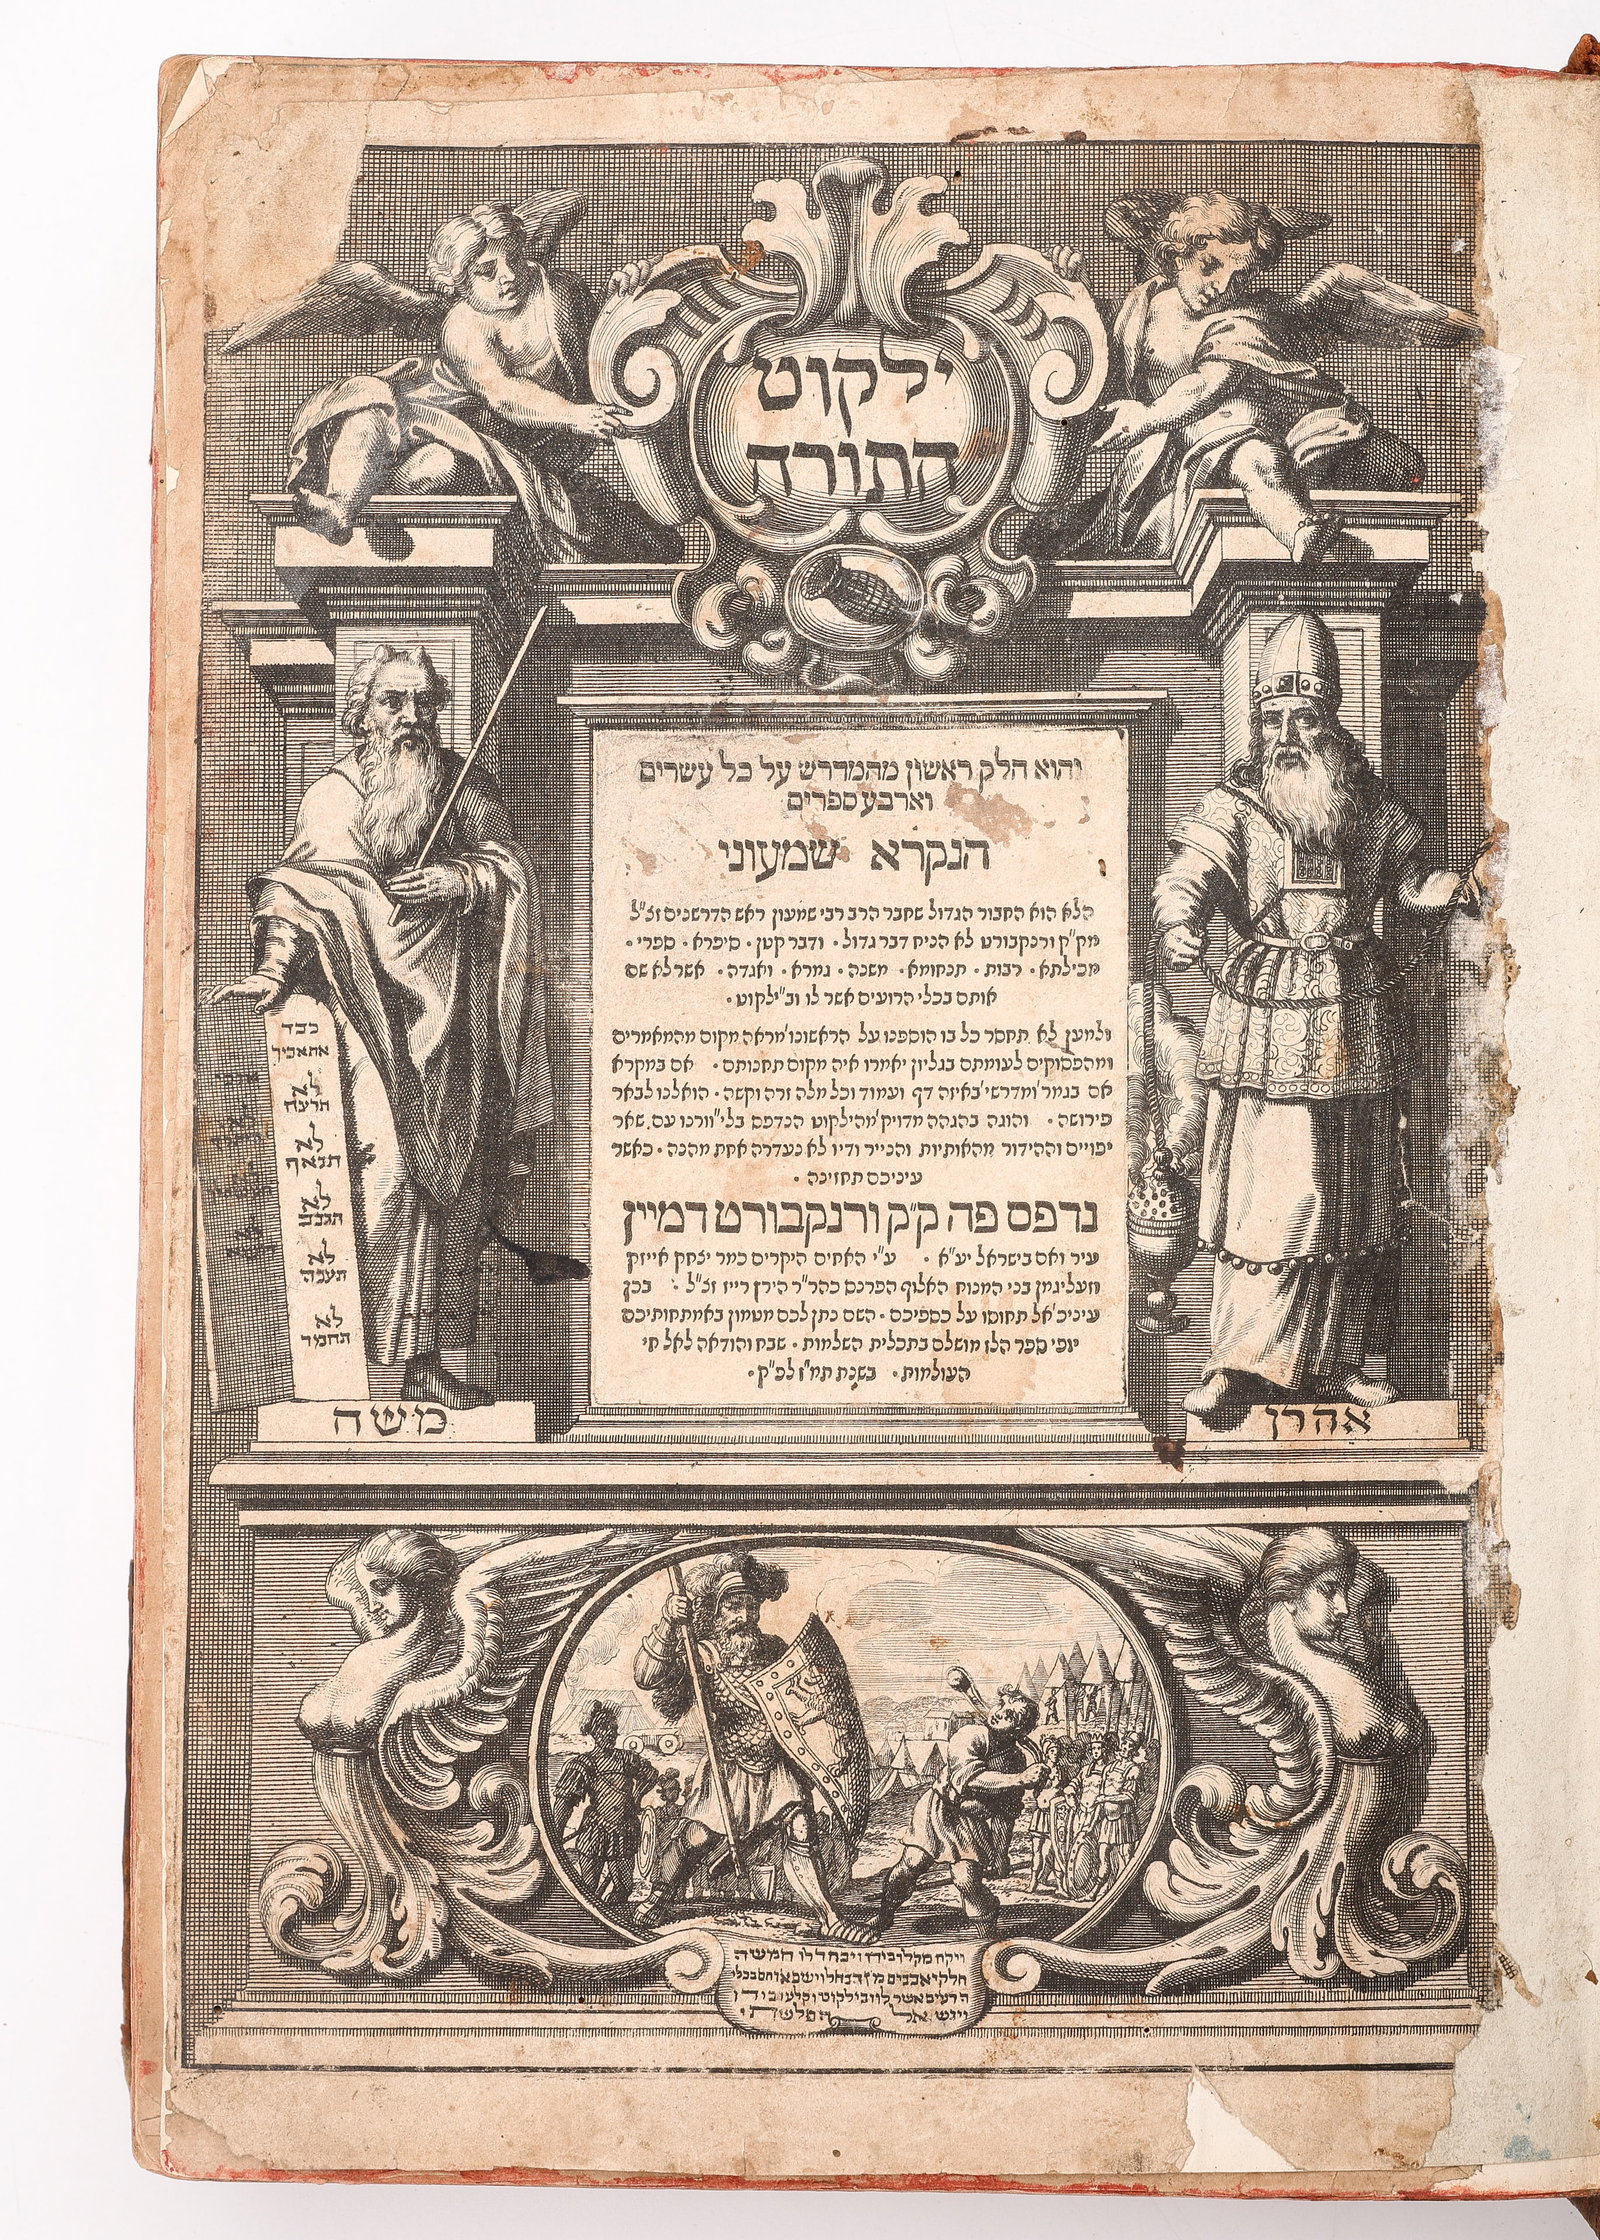 ילקוט
התורה
והוא חלק ראשון מהמדרש על כל עשרים
וארבע ספרים
הנקרא שמעוני
הלא הוא החבור הגדול שחבר הרב רבי שמעון ראש הדרשנים זצ"ל
מק"ק ורנקבורט לא הניח דבר גדול · ודבר קטן · סיפרא · ספרי ·
מכילתא · רבות · תנחומא · משנה · גמרא · ואגדה · אשר לא שם
אותם בכלי הרועים אשר לו וב"ילקוט ·
ולמען לא תחסר כל בו הוספנו על הראשונו' מראה מקום מהמאמרים
ומהפסוקים לעומתם בגליון יאמרו איה מקום תחנותם · אם במקרא
אם בגמר' ומדרשי' באיזה דף ועמוד וכל מלה זרה וקשה · הואלנו לבאר
פירושה · והוגה בהגהה מדויק' מהילקוט הנדפס בלי"וורנו עם שאר
יפויים וההידור מהאותיות והנייר ודיו לא נעדרה אחת מהנה · כאשר
עיניכם תחזינה ·
נדפס פה ק"ק ורנקבורט דמיין
עיר ואם בישראל יע"א · ע"י האחים היקרים כמר יצחק אייזק
וזעליגמן בני המנוח האלוף הפרנס כהר"ר הירץ רייז זצ"ל · בכן
עיניכ' אל תחוסו על כספיכם · השם נתן לכם מטמון באמתחותיכם
יופי ספר הלז מושלם בתכלית השלמות · שבח והודאה לאל חי
העולמות · בשנת תמ"ז לפ"ק ·
כבד
את אביך
לא
תרצח
לא
תנאף
לא
תגנב
לא
תענה
לא
תחמד
משה
אהרן
ויקח מקלו בידו ויבחר לו חמשה
חלקי אבנים מן הנחל וישם אותם בכלי
הרעים אשר לו ובילקוט וקלעו בידו
ויגש אל הפלשתי